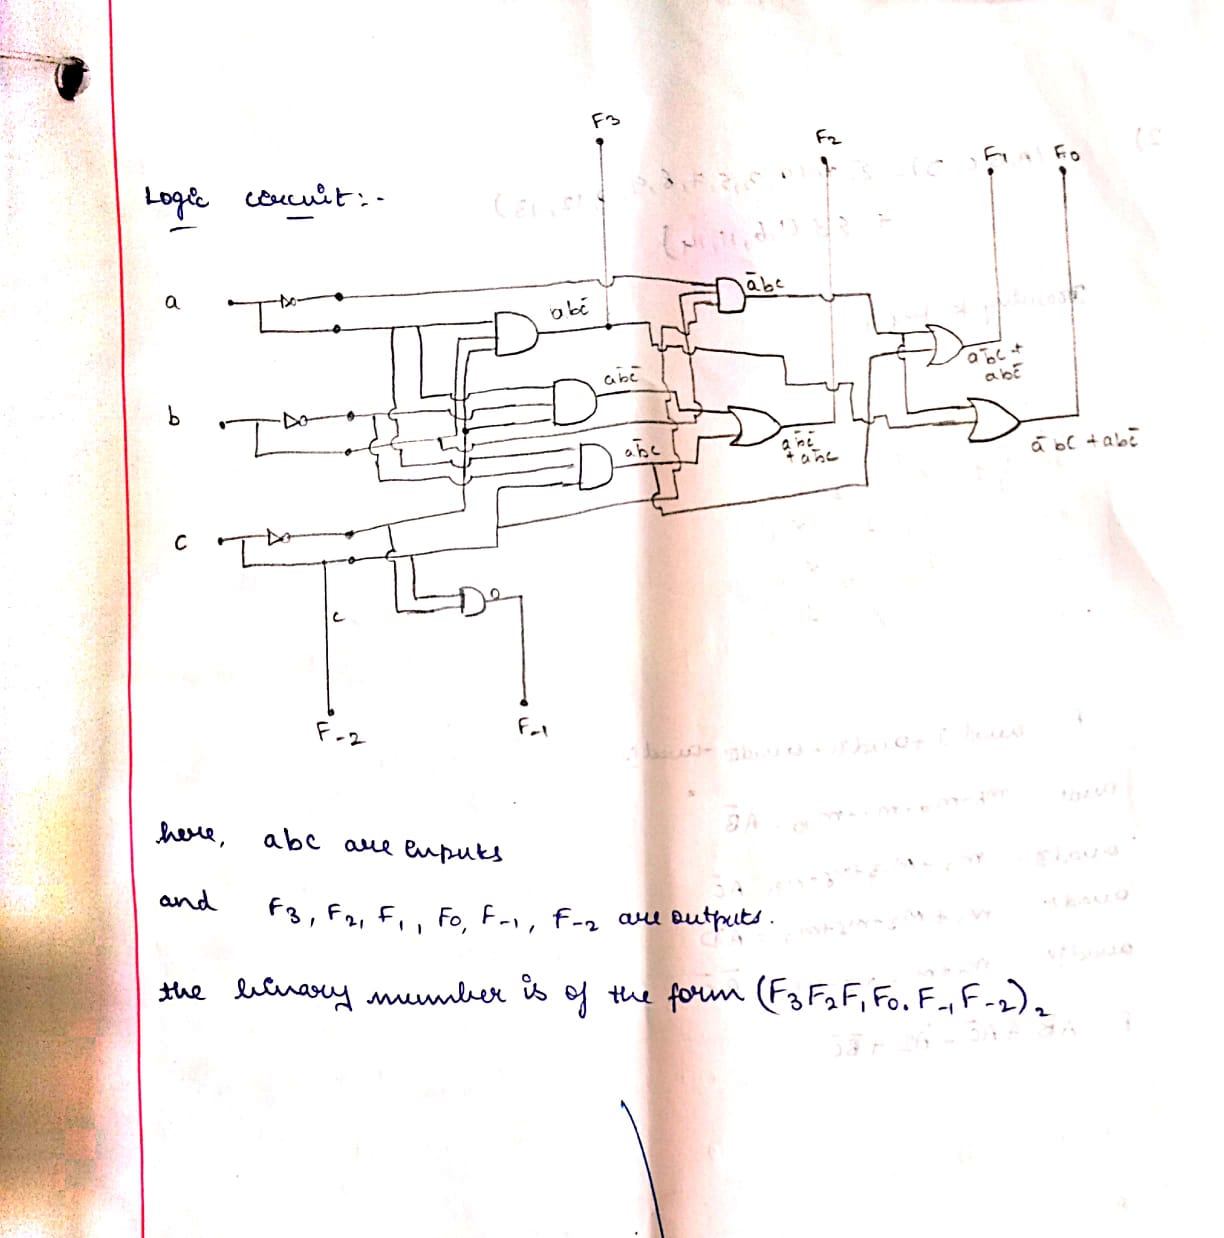 F3
F2
F1
F0
Logic circuit:-
a
abc̄
ābc
ab̄c̄
b
ab̄c
ab̄c̄
+ ab̄c
ābc +
abc̄
ābc + abc̄
c
c
F-2
F-1
here, abc are inputs
and F3, F2, F1, F0, F-1, F-2 are outputs.
the binary number is of the form (F3F2F1F0.F-1F-2)2